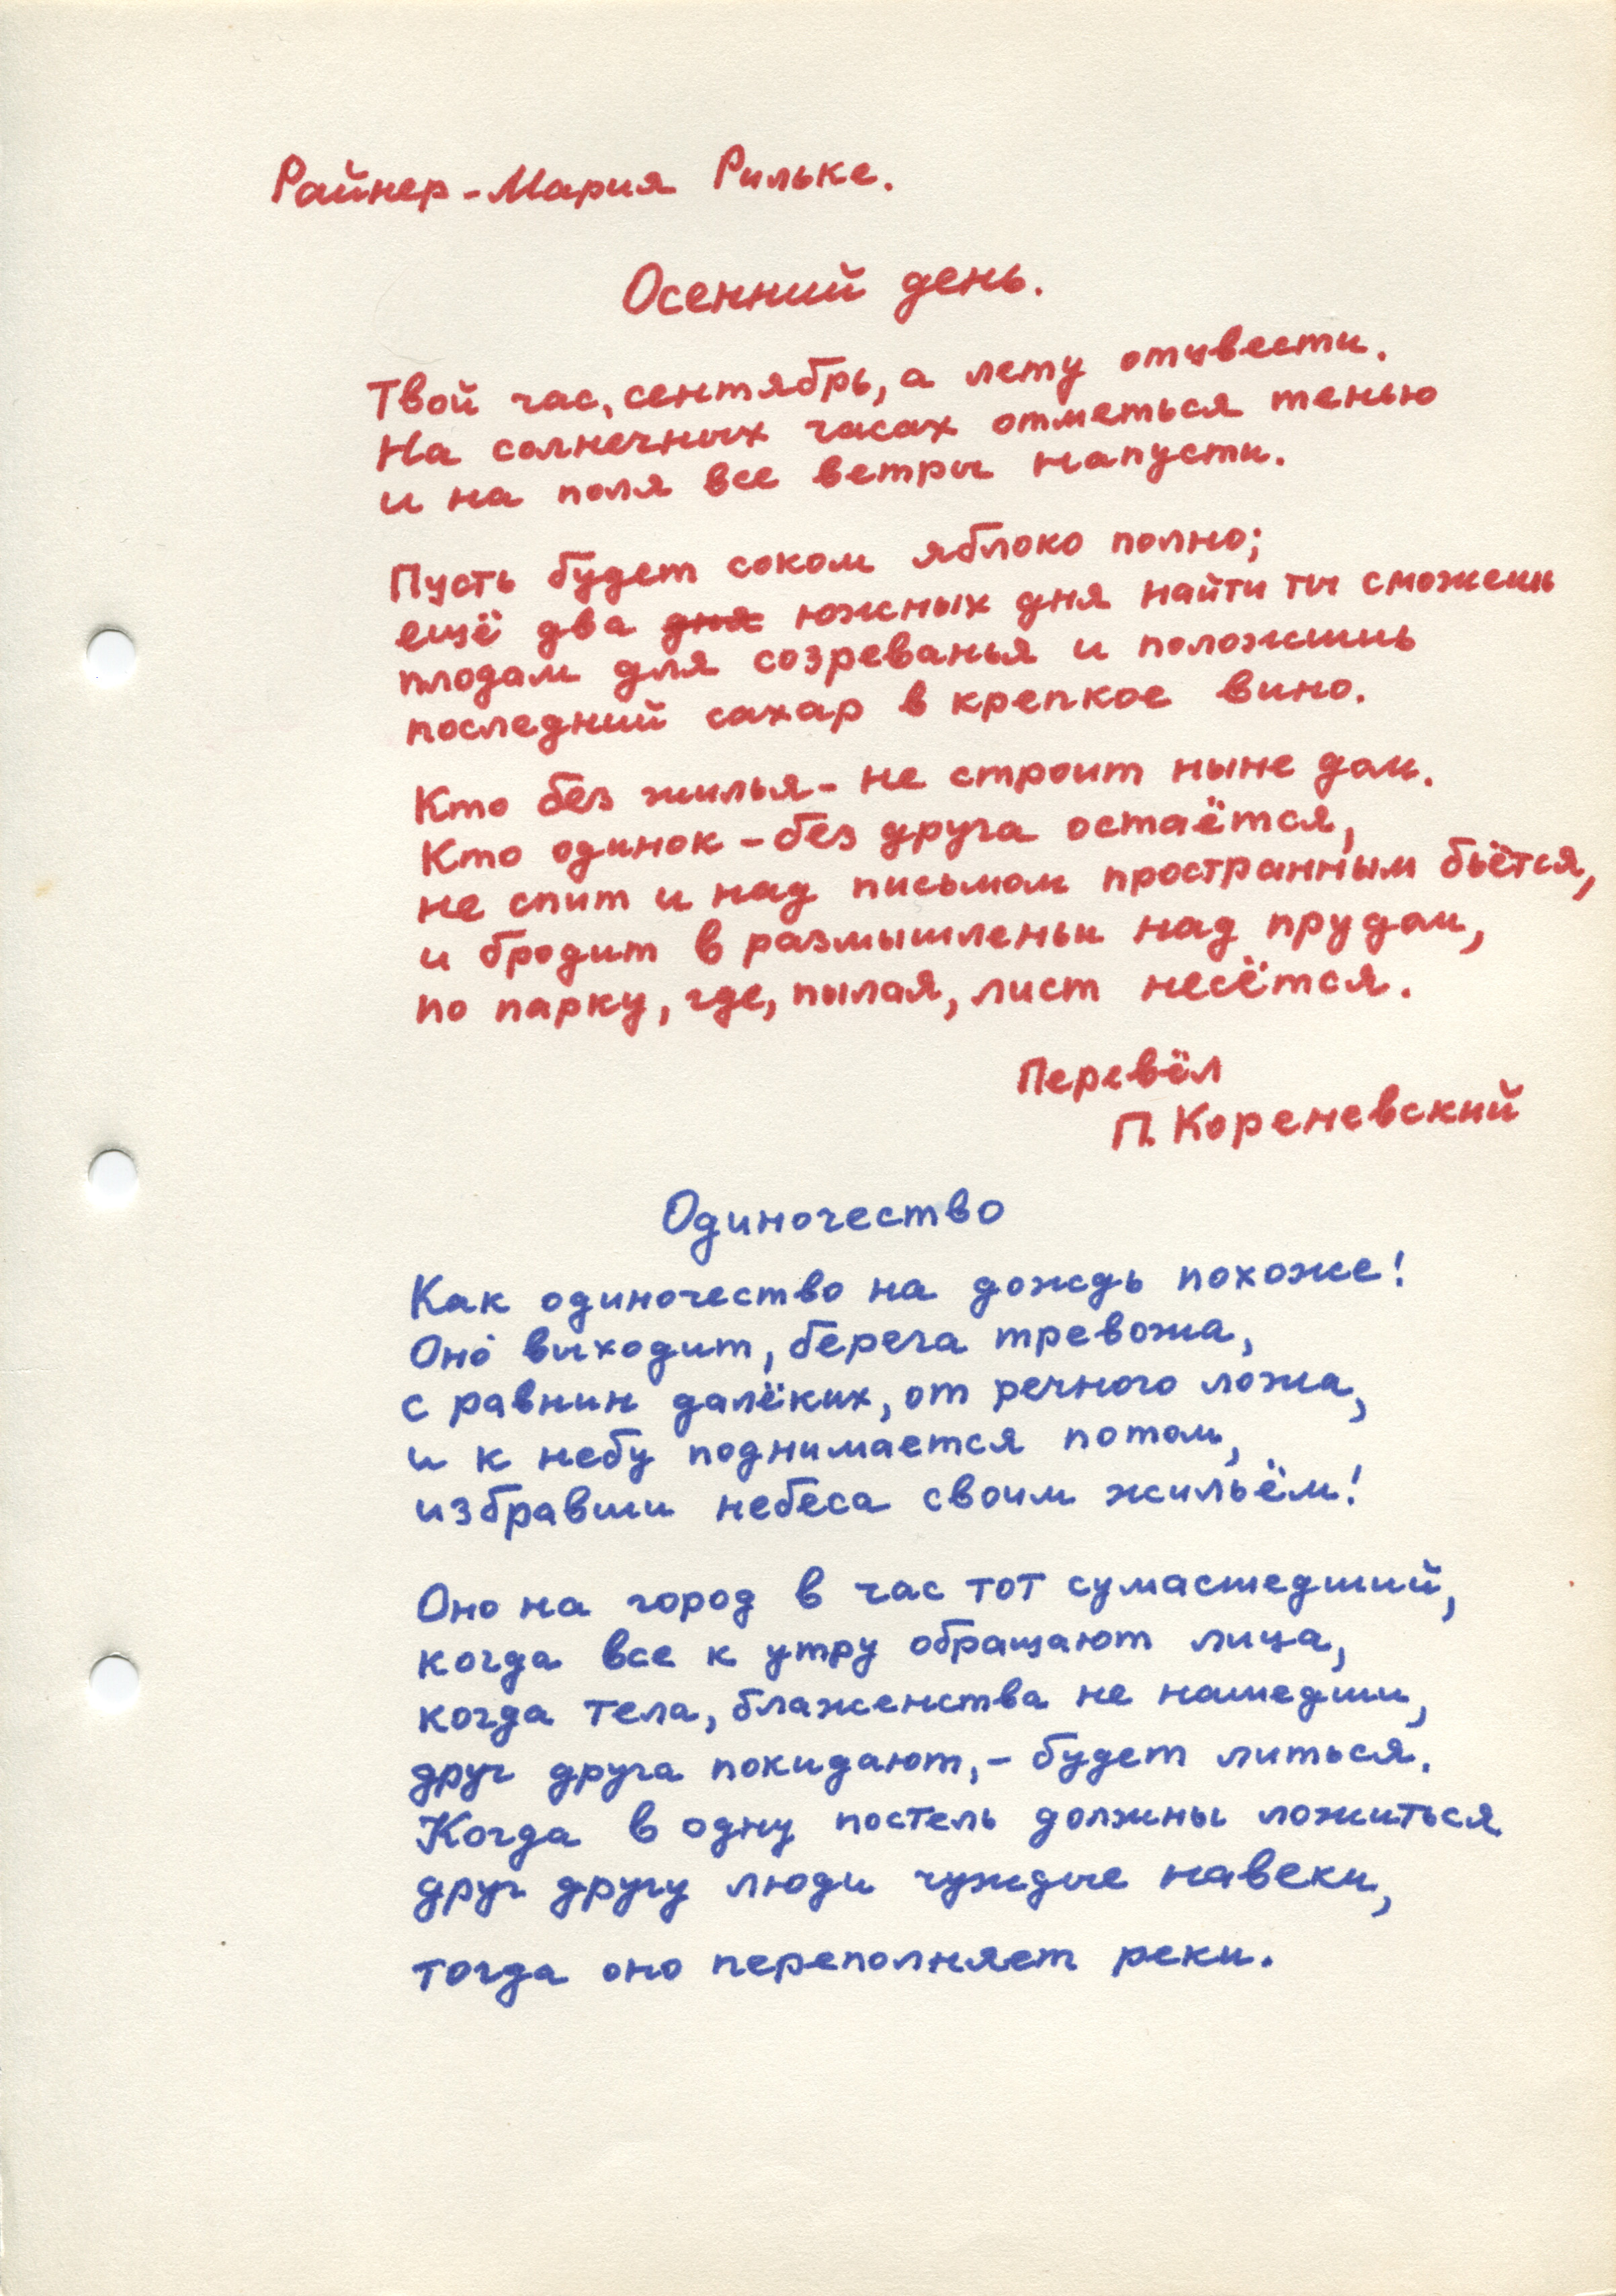 Райнер-Мария Рильке.
Осенний день.
Твой час, сентябрь, а лету отцвести.
На солнечных часах отметься тенью
и на поля все ветры напусти.
Пусть будет соком яблоко полно;
ещё два дня южных дня найти ты сможешь
плодам для созреванья и положишь
последний сахар в крепкое вино.
Кто без жилья – не строит ныне дом.
Кто одинок – без друга остаётся,
не спит и над письмом пространным бьётся,
и бродит в размышленьи над прудом,
по парку, где, пылая, лист несётся.
Перевёл
П. Кореневский
Одиночество
Как одиночество на дождь похоже!
Оно́ выходит, берега тревожа,
с равнин далёких, от речного ложа,
и к небу поднимается потом,
избравши небеса своим жильём!
Оно на город в час тот сумасшедший,
когда все к утру обращают лица,
когда тела, блаженства не нашедши,
друг друга покидают, – будет литься.
Когда в одну постель должны ложиться
друг другу люди чуждые навеки,
тогда оно переполняет реки.